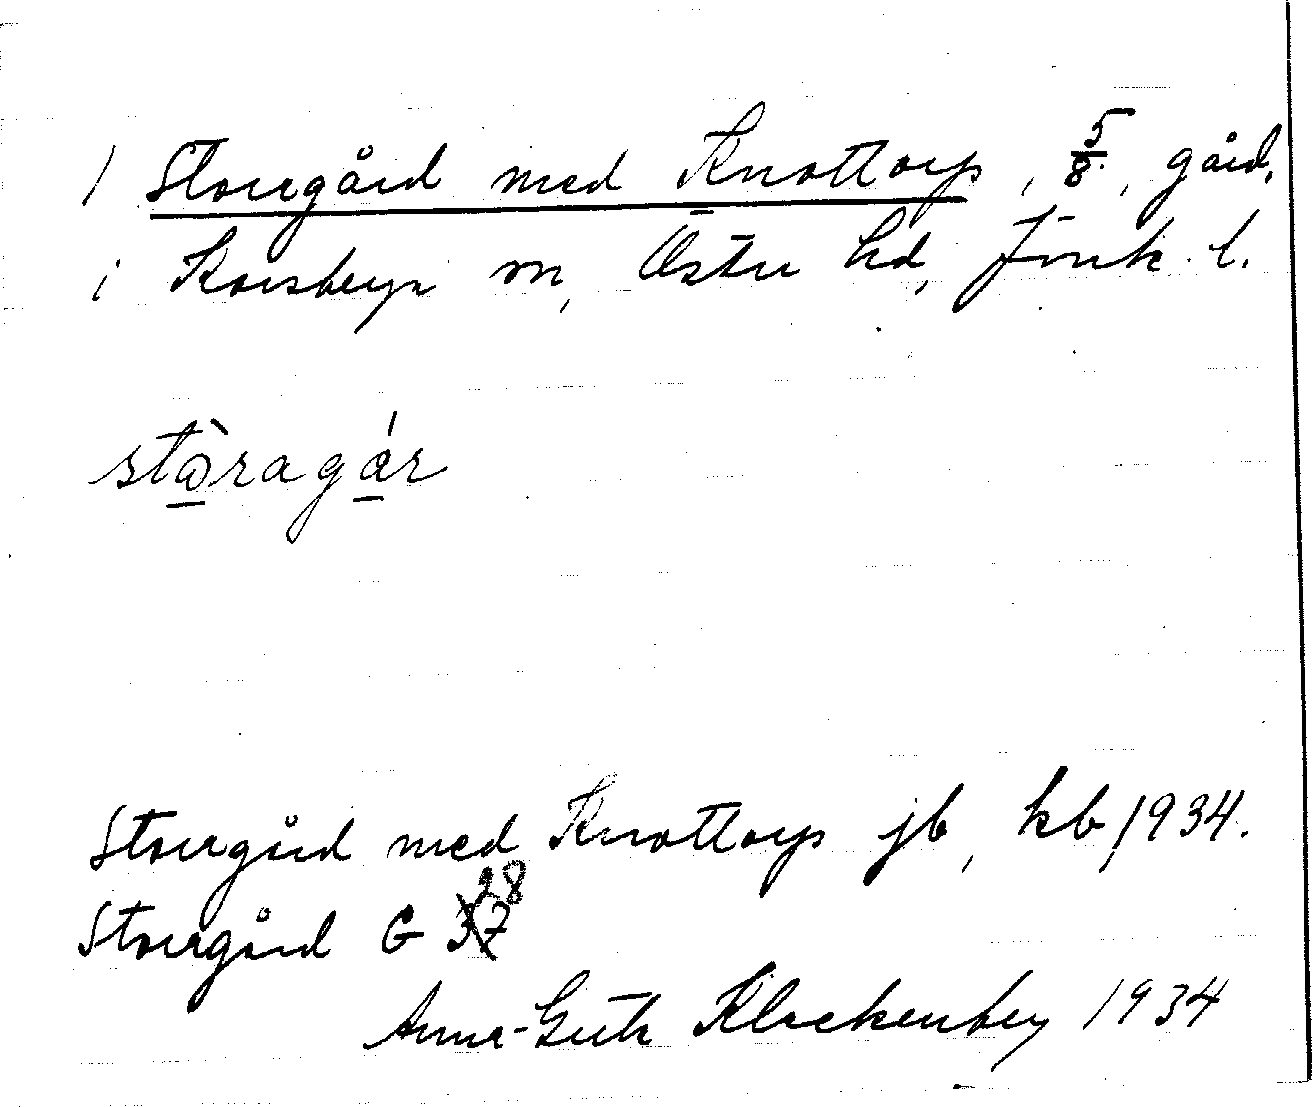 1 Storegård med Knottorp, 5/8, gård,
i Korsberga sn, Östra hd, Jönk. l.
stòragár
Storegård med Knottorp jb, kb, 1934.
28
Storegård G 37
Anna-Greta Klockenberg 1934